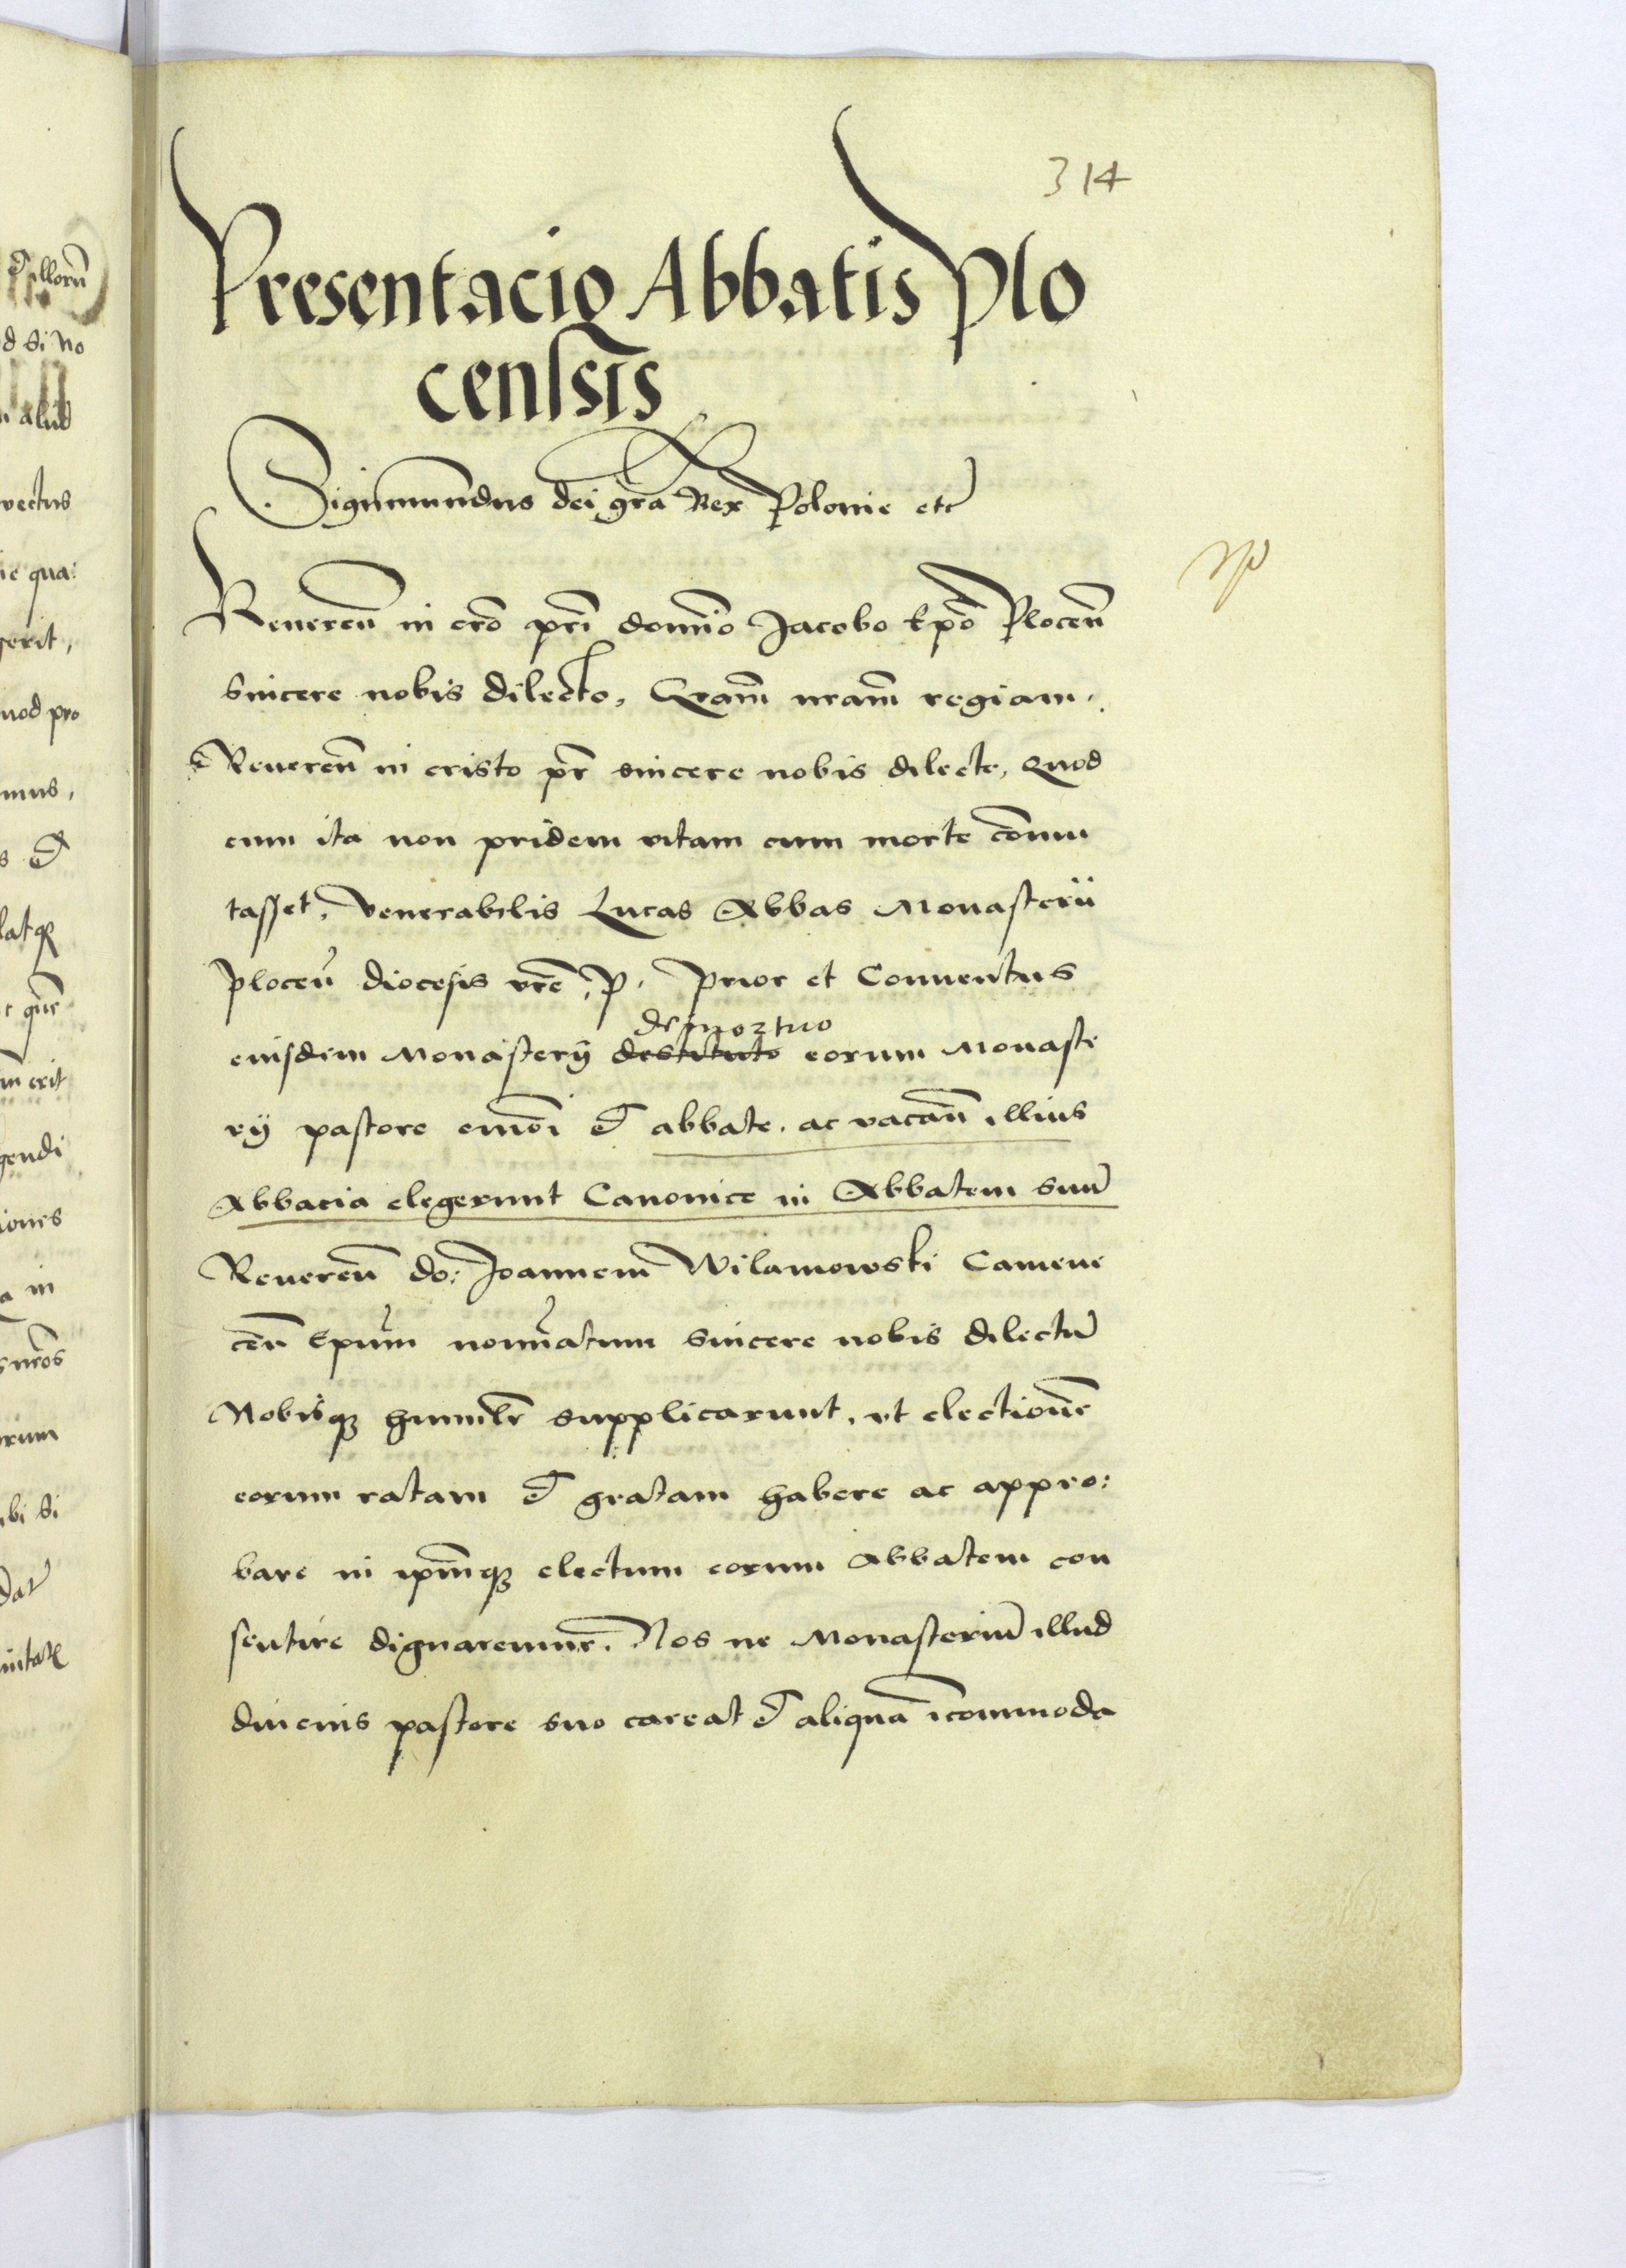 314
Presentacio Abbatis Plo
censis
Sigismundus dei gra Rex Polonie etc
Reueren in cro pri domino Jacobo Epo Plocen
sincere nobis dilecto, Gram nram regiam.
Reueren in cristo pr sincere nobis dilecte, Quod
cum ita non pridem vitam cum morte commu
tasset, venerabilis Lucas Abbas Monasterii
plocen diocesis vre, P. Prior et Conuentus
demortuo
eiusdem Monasterij destituto eorum Monaste
rij pastore et abbate. ac vacan illius
Abbacia elegerunt Canonice in Abbatem suu
Reueren do: Joannem Wilamowski Camene
cen Epum nominatum sincere nobis dilectu
Nobisq humilr supplicarunt, vt electione
eorum ratam et gratam habere ac appro:
bare in ipmq electum eorum Abbatem con
sentire dignaremur. Nos ne Monasteriu illud
diucius pastore suo careat et aliqua icommoda
illoru
d si No
alud
vectus
ie qua:
gerit,
uod pro
mus,
s et
latq
m erit
gendi
iones
a in
orum
ibi si